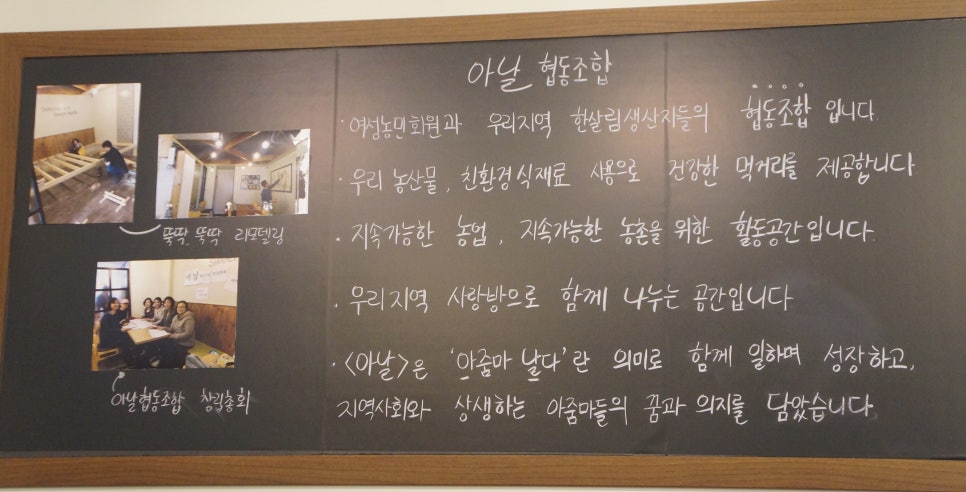 아날 협동조합
· 여성농민회원과 우리지역 한살림생산자들의 협동조합 입니다.
· 우리 농산물, 친환경식재료 사용으로 건강한 먹거리를 제공합니다
· 지속가능한 농업, 지속가능한 농촌을 위한 활동공간입니다.
· 우리지역 사랑방으로 함께 나누는 공간입니다
· <아날>은 '아줌마 날다'란 의미로 함께 일하며 성장하고,
지역사회와 상생하는 아줌마들의 꿈과 의지를 담았습니다.
뚝딱 뚝딱 리모델링
아날
아날협동조합 창립총회